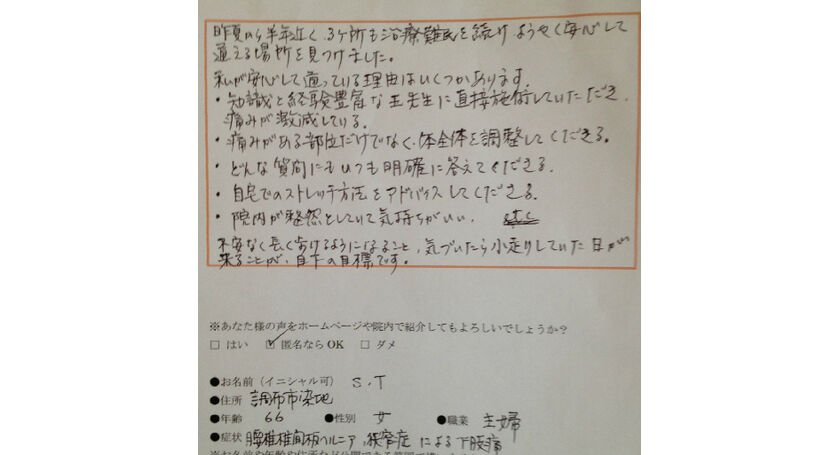 昨夏から半年近く、3ヶ所も治療難民を続けようやく安心して
通える場所を見つけました。
私が安心して通っている理由はいくつかあります。
・知識と経験豊富な王先生に直接施術していただき、
痛みが激減している。
・痛みがある部位だけでなく、体全体を調整してくださる。
・どんな質問にもいつも明確に答えてくださる。
・自宅でのストレッチ方法をアドバイスしてくださる。
・院内が整然としていて気持ちがいい。
不安なく長く歩けるようになること、気づいたら小走りしていた日が
来ることが、目下の目標です。
※あなた様の声をホームページや院内で紹介してもよろしいでしょうか？
□ はい ☑ 匿名ならOK □ ダメ
●お名前（イニシャル可） S.T
●住所 調布市染地
●年齢 66 ●性別 女 ●職業 主婦
●症状 腰椎椎間板ヘルニア、狭窄症による下肢痛